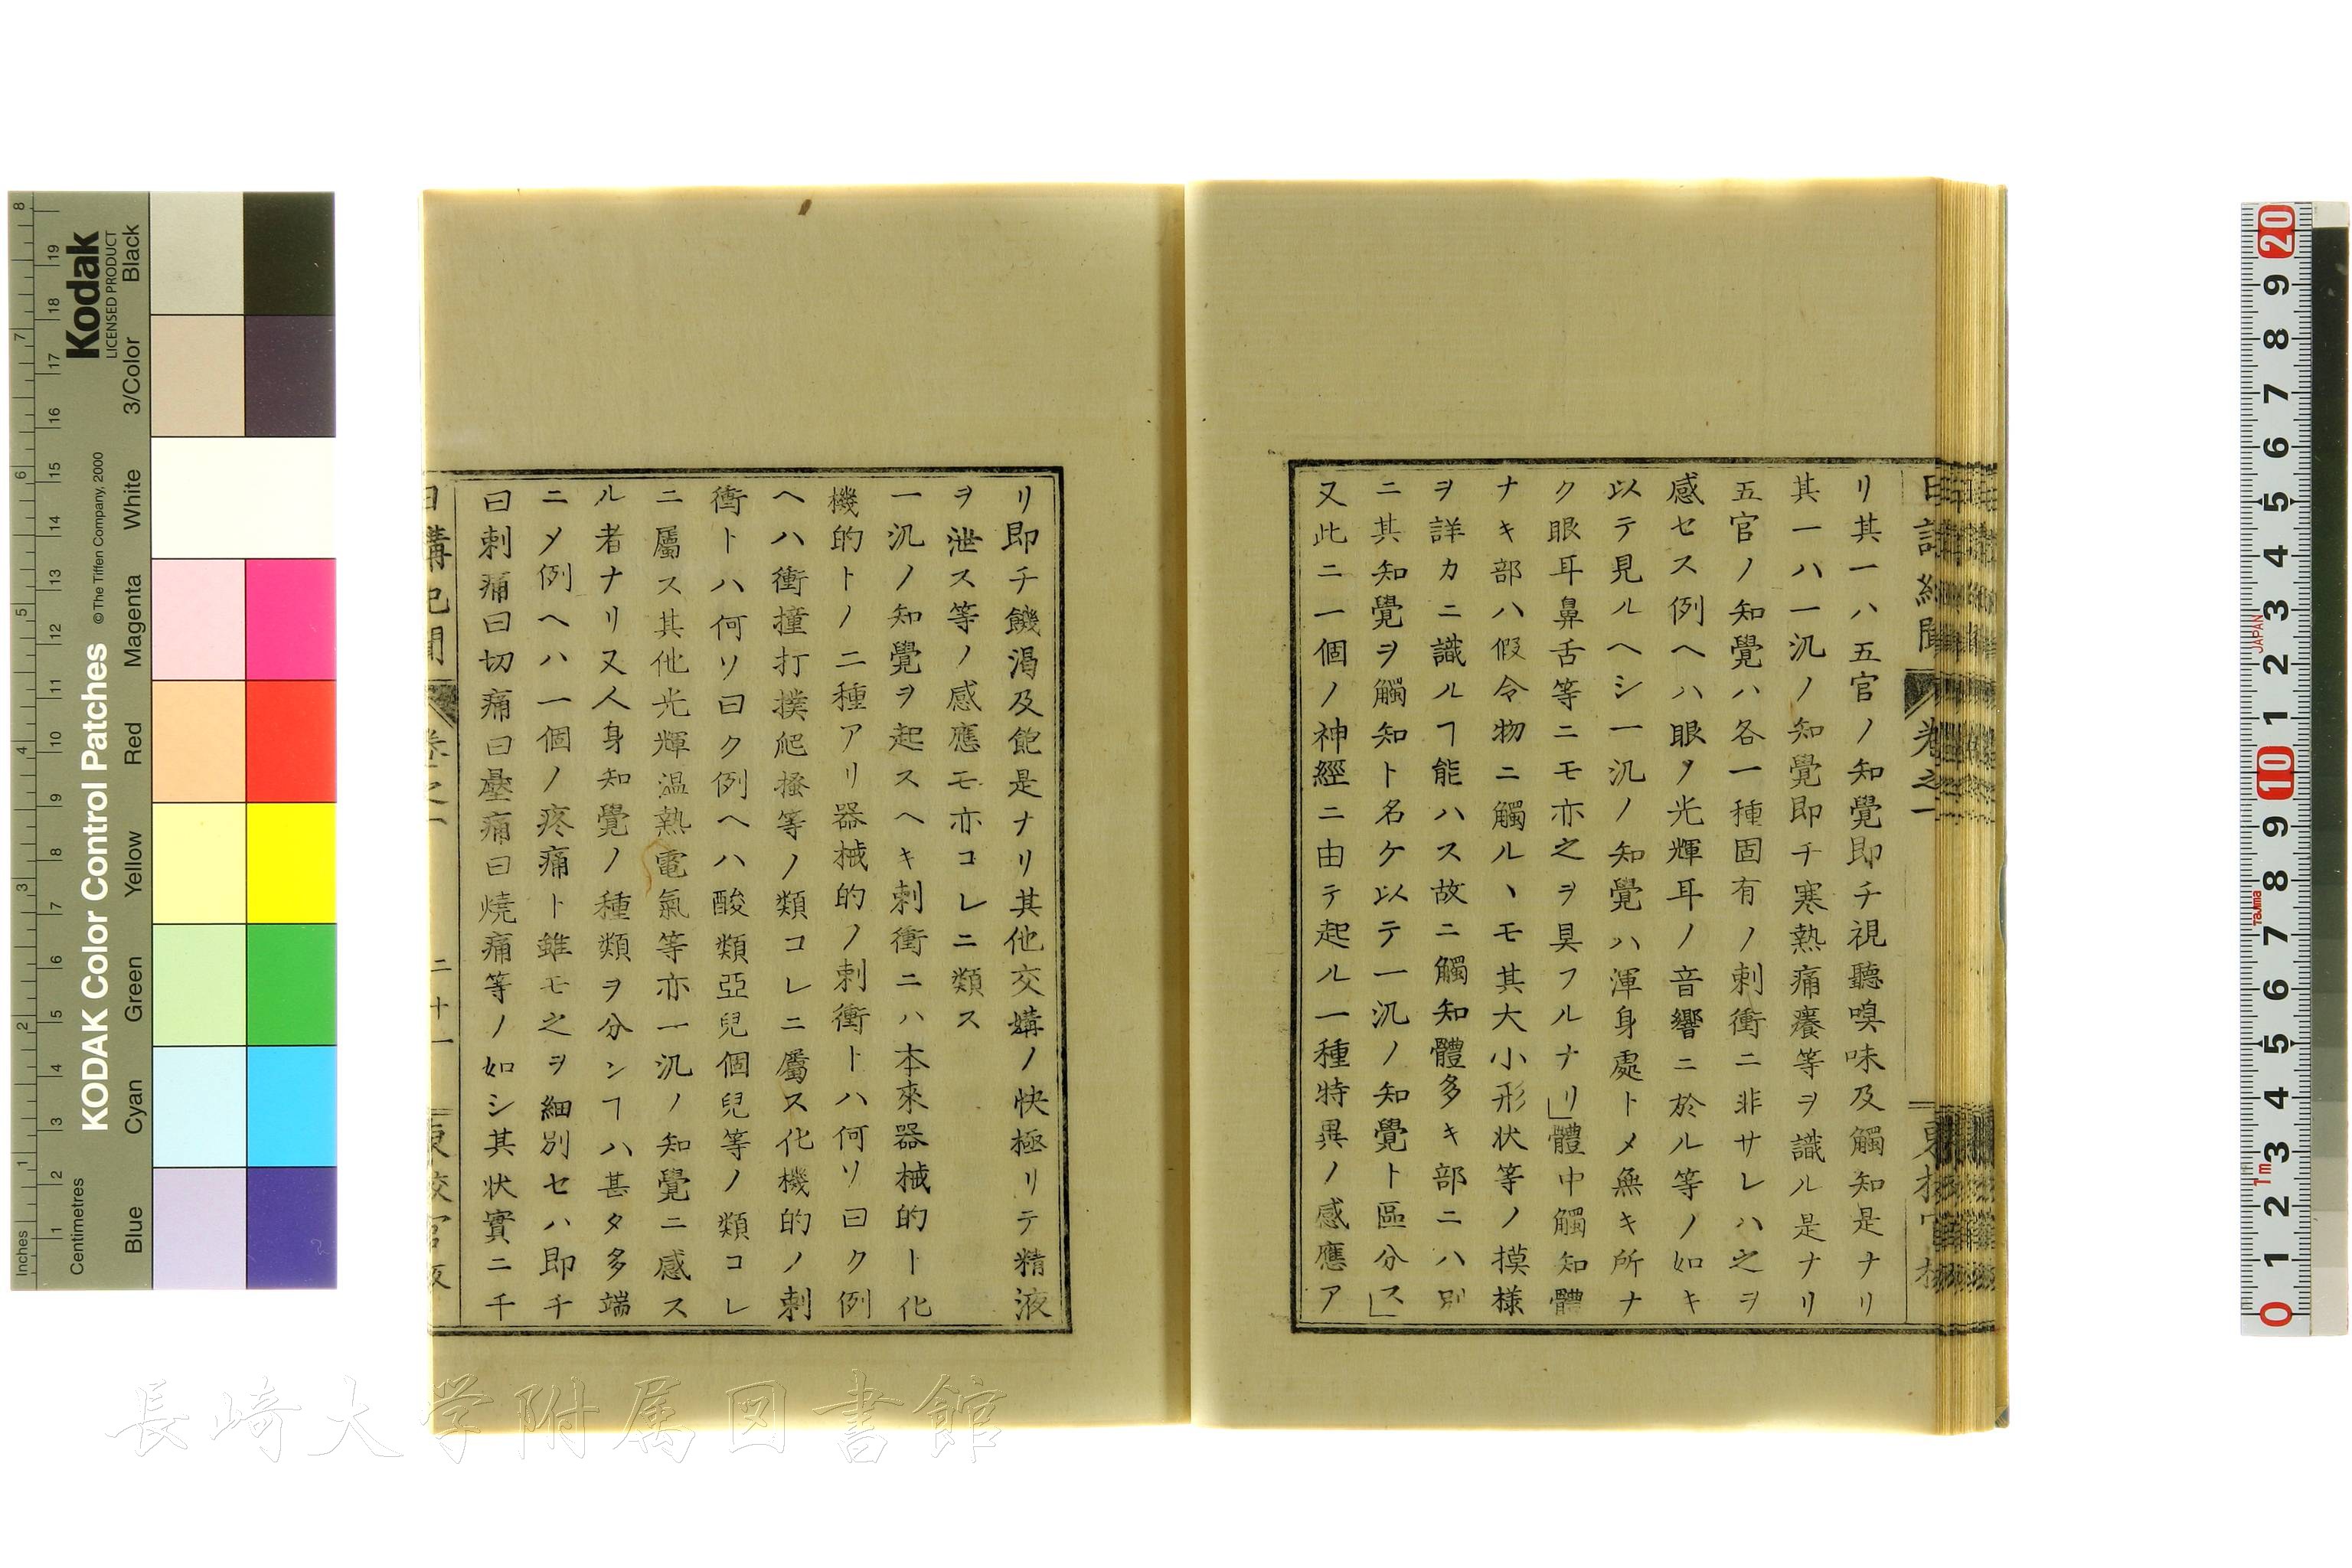 リ其一ハ五官ノ知覺即チ視聽嗅味及觸知是ナリ
其一ハ一汎ノ知覺即チ寒熱痛癢等ヲ識ル是ナリ
五官ノ知覺ハ各一種固有ノ刺衝ニ非サレハ之ヲ
感セス例ヘハ眼ノ光輝耳ノ音響ニ於ル等ノ如キ
以テ見ルヘシ一汎ノ知覺ハ渾身處トメ無キ所ナ
ク眼耳鼻舌等ニモ亦之ヲ具フルナリ」體中觸知體
ナキ部ハ假令物ニ觸ルヽモ其大小形状等ノ摸樣
ヲ詳カニ識ルヿ能ハス故ニ觸知體多キ部ニハ別
ニ其知覺ヲ觸知ト名ケ以テ一汎ノ知覺ト區分ス」
又此ニ一個ノ神經ニ由テ起ル一種特異ノ感應ア
リ即チ饑渇及飽是ナリ其他交媾ノ快極リテ精液
ヲ泄ス等ノ感應モ亦コレニ類ス
一汎ノ知覺ヲ起スヘキ刺衝ニハ本來器械的ト化
機的トノ二種アリ器械的ノ刺衝トハ何ソ曰ク例
ヘハ衝撞打撲爬搔等ノ類コレニ屬ス化機的ノ刺
衝トハ何ソ曰ク例ヘハ酸類亞兒個兒等ノ類コレ
ニ屬ス其他光輝温熱電氣等亦一汎ノ知覺ニ感ス
ル者ナリ又人身知覺ノ種類ヲ分ンヿハ甚タ多端
ニメ例ヘハ一個ノ疼痛ト雖モ之ヲ細別セハ即チ
曰刺痛曰切痛曰壓痛曰燒痛等ノ如シ其状實ニ千
日講記聞 卷之一 二十一 東校官版
長崎大学附属図書館
KODAK Color Control Patches
© The Tiffen Company, 2000
Kodak
LICENSED PRODUCT
Inches
Centimetres
Blue Cyan Green Yellow Red Magenta White 3/Color Black
JAPAN
Tajima
1m